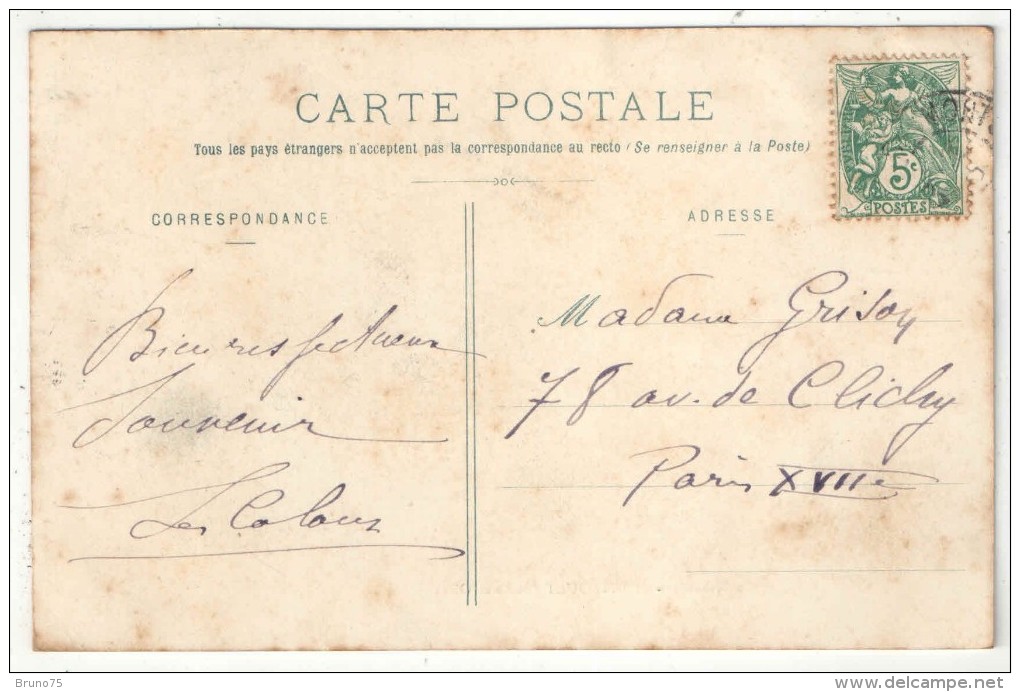 CARTE POSTALE
Tous les pays étrangers n'acceptent pas la correspondance au recto (Se renseigner à la Poste)
CORRESPONDANCE
ADRESSE
5c
POSTES
Bien respectueux
Souvenir
Les
Madame Grison
78 av. de Clichy
Paris XVIIe
Bruno75
www.delcampe.net